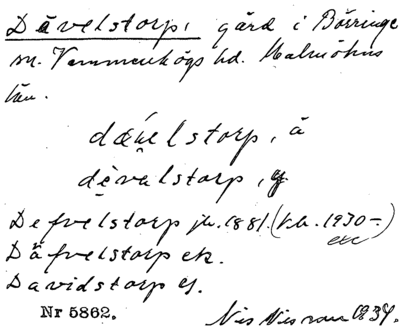 Dävelstorp, gård i Börringe
sn. Vemmenhögs hd. Malmöhus
län.
dævelstorp, ä
dèvalstorp, y.
Defvelstorp jb. 1881. (t.b. 1930-.
etc)
Däfvelstorp ek.
Davidstorp ej.
Nr 5862. Nils Nilsson 1934.